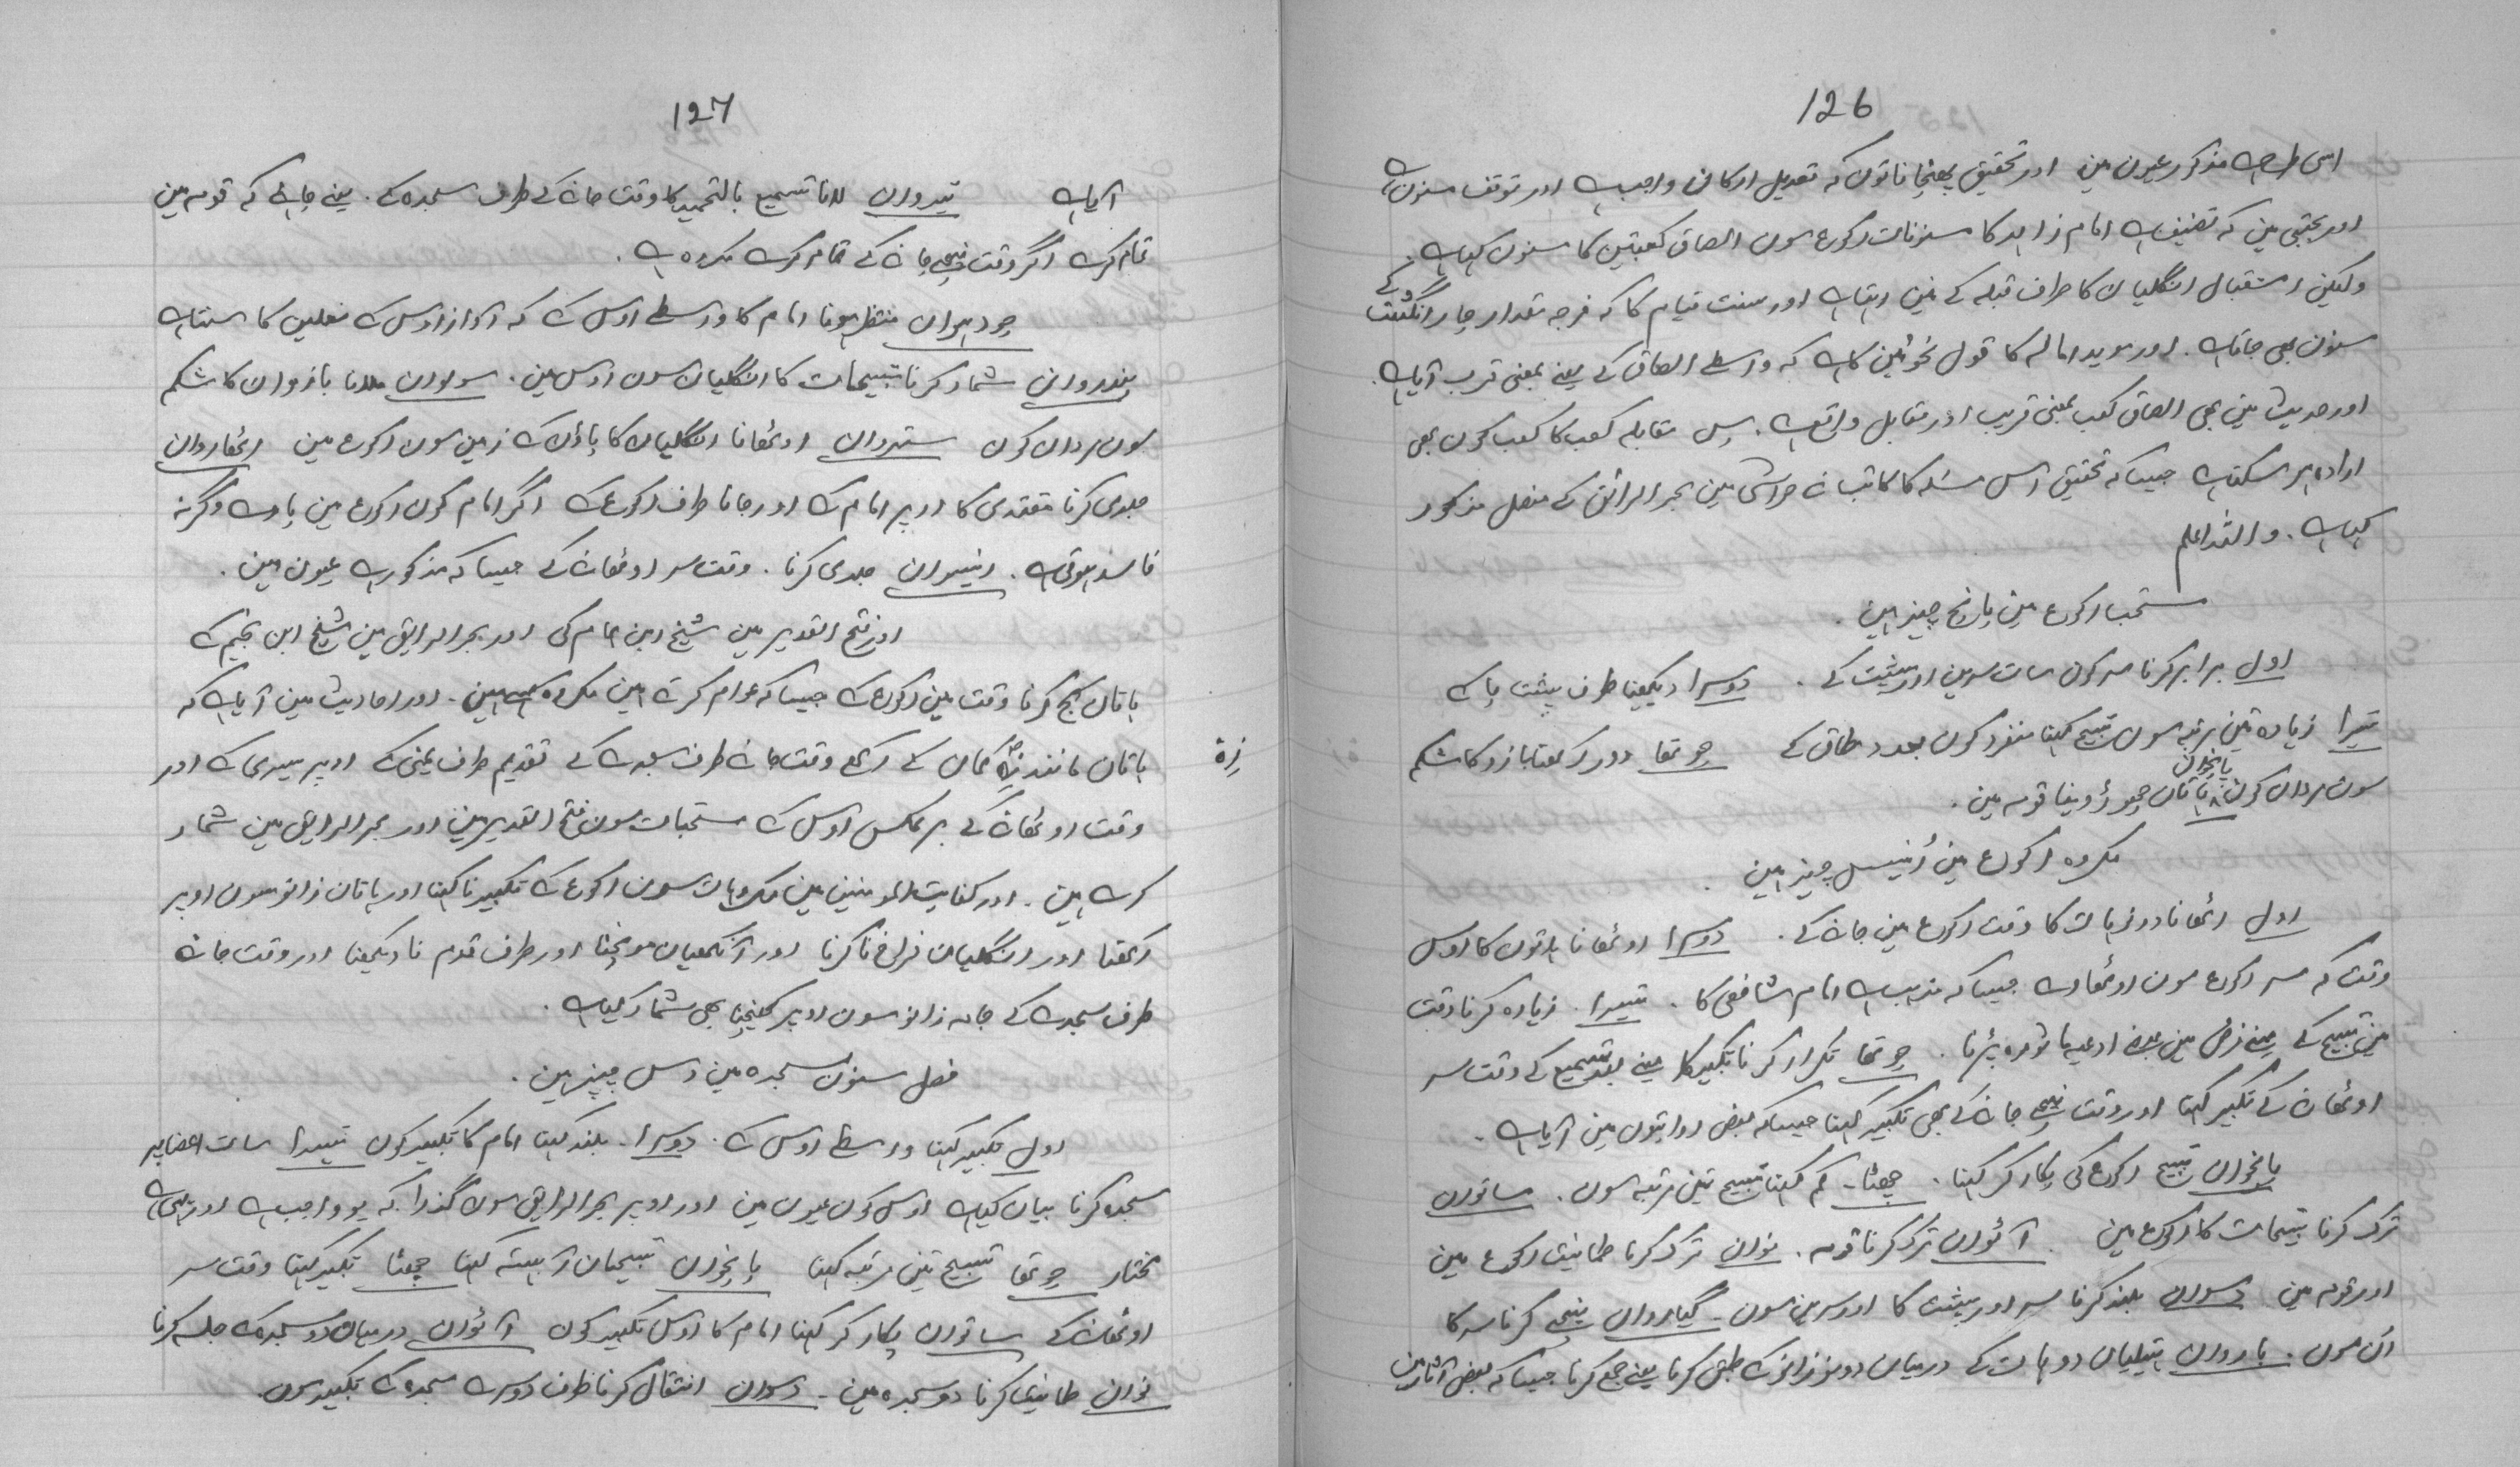 126
اسی طرح ہے مذکور عیون مین اور تحقیق پہنچانا توں کہ تعدیل ارکان واجب ہے اور توقف مسنون ہے
اور مجتبی مین کہ تصنیف ہے امام زاہد کا مسنونات رکوع سون الصاق کعبتین کا مسنون کہا ہے .
ولیکن استقبال انگلیان کا طرف قبلہ کے نین رہتا ہے اور سنت قیام کا کہ فرجہ مقدار چار انگشت کے
مسنون بھی جاتا ہے . اور موید امالہ کا قول نحوئین کا ہے کہ واسطے الصاق کے یعنے بمعنی قرب آیا ہے .
اور حدیث مین بھی الصاق کعب بمعنی قریب اور مقابل واقع ہے . پس مقابلہ کعب کا کعب کون بھی
ارادہ ہو سکتا ہے جیسا کہ تحقیق اس مسئلہ کا کاتب نے حواشی مین بحر الرائق کے مفصل مذکور
کیا ہے . واللہ اعلم
مستحب رکوع مین پانچ چیز ہین .
اول برابر کرنا سر کون سات سرین اور پیٹ کے . دوسرا دیکھنا طرف پشت پا کے
تیرا زیادہ تین مرتبہ سون تسبیح کہنا منفرد کون بعدد طاق کے چوتھا دور رکھنا بازو کا شکم
سون مردان کون پانچواں ہاتان چھوڑ دینا قومہ مین .
مکروہ رکوع مین اُنیس چیز ہین .
اول اٹھانا دونو ہات کا وقت رکوع مین جانے کے . دوسرا اوٹھانا ہاتوں کا اوس
وقت کہ سر رکوع سون اوٹھاوے جیسا کہ مذہب ہے امام شافعی کا . تیسرا . زیادہ کرنا وقت
مین تسبیح کے یعنے فرض مین بعضے ادعیہ ماثورہ پڑنا . چوتھا تکرار کرنا تکبیر کا یعنے بعد تسمیع کے وقت سر
اوٹھانے کے تکبیر کہنا اور وقت نیچے جانے کے بھی تکبیر کہنا جیسا کہ بعض روایتوں مین آیا ہے .
پانچواں تسبیح رکوع کی پکار کر کہنا . چھٹا . کم کہنا تسبیح تین مرتبہ سون . ساتواں
ترک کرنا تسبیحات کا رکوع مین . آٹواں ترک کرنا قومہ . نواں ترک کرنا طمانیت رکوع مین
اور قومہ مین . دسواں بلند کرنا سر اور پیٹ کا اور سرین سون . گیارواں نیچے کرنا سر کا
ان سون . بارواں ہتیلیاں دو ہات کے درمیان دونو زانو کے طبق کرنا یعنے جمع کرنا جیسا کہ بعض آثار مین
127
آیا ہے تیرواں لانا تسمیع بالتحمید کا وقت جانے کے طرف سجدہ کے . یعنے چاہئے کہ قومہ مین
تمام کرے اگر وقت نیچے جانے کے تمام کرے مکروہ ہے .
چودہواں منتظر ہونا امام کا واسطے اوس کے کہ آواز اوس کے نعلین کا سنتا ہے
پندرواں شمار کرنا تسبیحات کا انگلیاں سون اوس مین . سولواں ملانا بازوان کا شکم
سون مرداں کون ستروان اوٹھانا انگلیاں کا پاؤں کے زمین سون رکوع مین اٹھارواں
جلدی کرنا مقتدی کا اوپر امام کے اور جانا طرف رکوع کے اگر امام کون رکوع مین پاوے وگرنہ
فاسد ہوتی ہے . انیسواں جلدی کرنا . وقت سر اوٹھانے کے جیسا کہ مذکور ہے عیون مین .
اور فتح القدیر مین شیخ ابن ہمام کی اور بحر الرایق مین شیخ ابن نجیم کے
ہاتاں کج کرنا وقت مین رکوع کے جیسا کہ عوام کرتے ہین مکروہ ہین . اور احادیث مین آیا ہے کہ
ہاتاں مانند زہ کمان کے رکھے وقت جانے طرف سجدے کے تقدیم طرف یمنی کے اوپر یسری کے اور
زہ
وقت اوٹھانے کے برعکس اوس کے مستحبات سون فتح القدیر مین اور بحر الرایق مین شمار
کرے ہین . اور کفایت المومنین مین مکروہات سون رکوع کے تکبیر نا کہنا اور ہاتاں زانو سون اوپر
رکھنا اور انگلیاں فراخ نا کرنا اور آنکھیاں موچنا اور طرف قدم نا دیکھنا اور وقت جانے
طرف سجدے کے جامہ زانو سون اوپر کھینچنا بھی شمار کیا ہے .
فصل مسنون سجدہ مین دس چیز ہین .
اول تکبیر کہنا واسطے اوس کے . دوسرا . بلند کہنا امام کا تکبیر کون تیسرا سات اعضا پر
سجدہ کرنا بیان کیا ہے اوس کون عیون مین اور اوپر بحر الرایق سون گذرا کہ یو واجب ہے اور یہی ہے
مختار چوتھا تسبیح تین مرتبہ کہنا پانچواں تسبیحاں آہستہ کہنا چھٹا تکبیر کہنا وقت سر
اوٹھانے کے ساتواں پکار کر کہنا امام کا اوس تکبیر کون آٹواں درمیان دو سجدے کے جلسہ کرنا
نواں طمانیت کرنا دو سجدہ مین . دسواں انتقال کرنا طرف دوسرے سجدہ کے تکبیر سون .